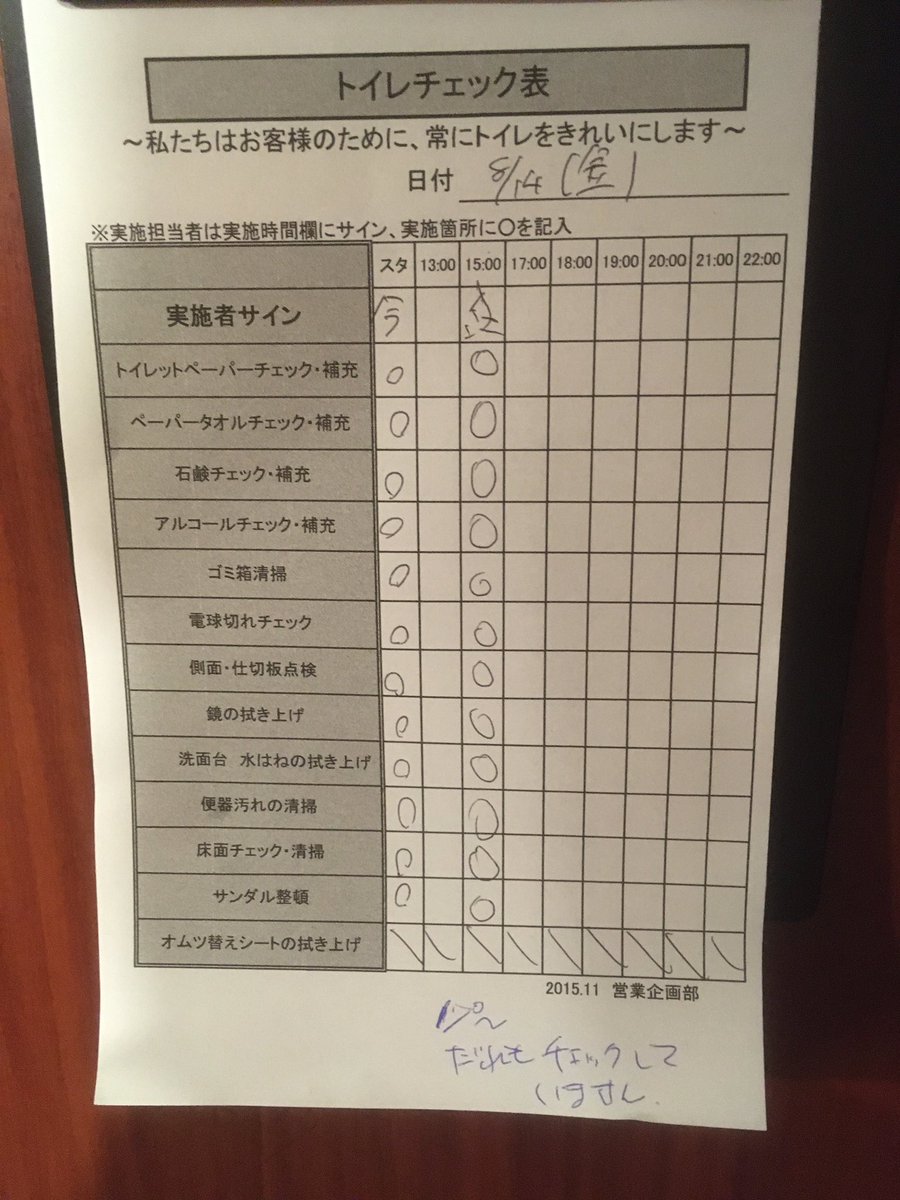 トイレチェック表
～私たちはお客様のために、常にトイレをきれいにします～
日付 (金)
※実施担当者は実施時間欄にサイン、実施箇所に〇を記入
スタ 13:00 15:00 17:00 18:00 19:00 20:00 21:00 22:00
実施者サイン
トイレットペーパーチェック・補充 〇 〇
ペーパータオルチェック・補充 〇 〇
石鹸チェック・補充 〇 〇
アルコールチェック・補充 〇 〇
ゴミ箱清掃 〇 〇
電球切れチェック 〇 〇
側面・仕切板点検 〇 〇
鏡の拭き上げ 〇 〇
洗面台 水はねの拭き上げ 〇 〇
便器汚れの清掃 〇 〇
床面チェック・清掃 〇 〇
サンダル整頓 〇 〇
オムツ替えシートの拭き上げ
2015.11 営業企画部
だれもチェックして
いません.